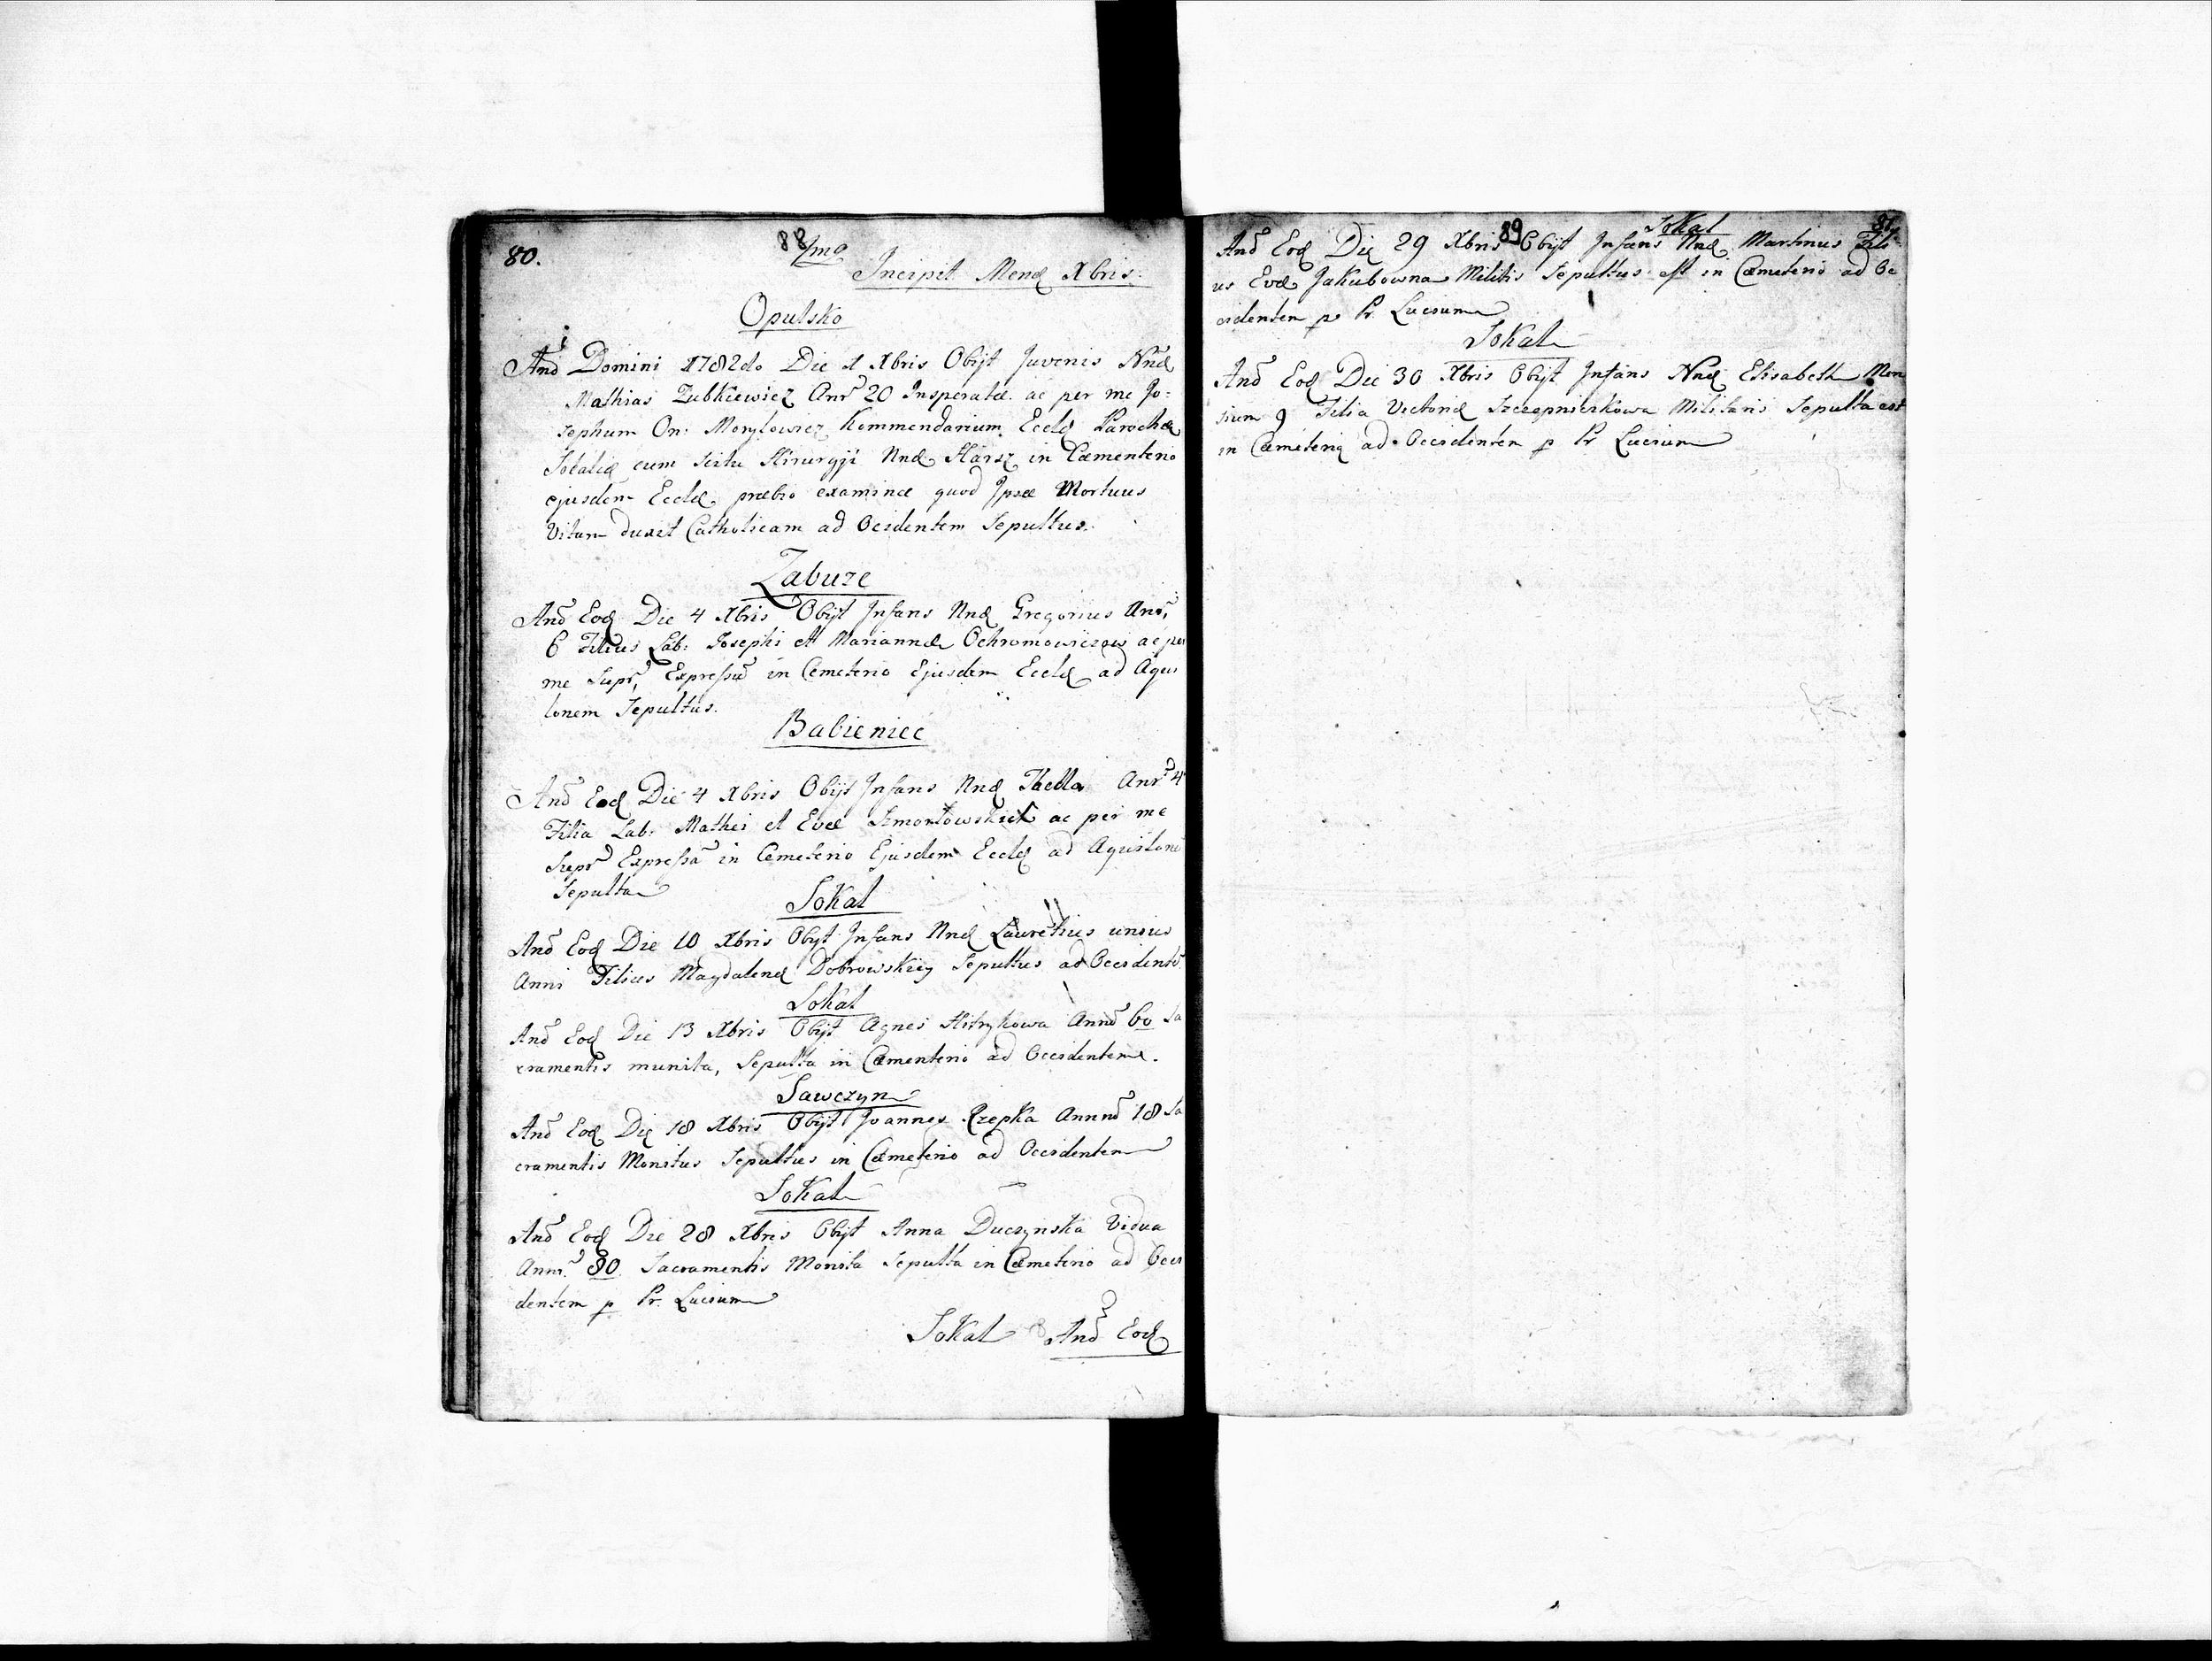 80.
88
Incipit Mens Xbris.
Opulsko
Anō Domini 1782do Die 1 Xbris Obijt Juvenis Nnē
Mathias Zubkiewicz Anr 20 Insperatæ ac per me Jo-
sephum On: Morylowicz Kommendarium Eccle Parochæ
Sokaliæ cum scitu Hirurgji Nnē Harsz in Cæmenterio
ejusdem Eccle. præbio examine quod Ipse Mortuus
Vitam duxit Catholicam ad Ocidentem Sepultus.
Zabuze
Anō Eod Die 4 Xbris Obijt Infans Nnē Gregorius Anr,
6 Filius Lab: Josephi et Mariannæ Ochromowiczow ac per
me Supr, Expressū in Cemeterio Ejusdem Eccle ad Aqui
lonem Sepultus.
Babieniec
Anō Eod Die 4 Xbris Obijt Infans Nnē Thecla Anr 4
Filia Lab: Mathei et Evæ Szmontowskich ac per me
Supr Expressā in Cemeterio Ejusdem Eccle ad Aquilonē
Sepulta
Sokal
Anō Eod Die 10 Xbris Obyt Infans Nnē Lauretius unius
Anni Filius Magdalenæ Dobrowskiey Sepultus ad Occidentē
Sokal
Anō Eod Die 13 Xbris Obijt Agnes Hitrykowa Annō 60 Sa
cramentis munita, Sepulta in Cæmenterio ad Occidentem.
Sawczyn
Anō Eod Die 18 Xbris Obijt Joannes Rzepka Annnō 18 Sa
cramentis Monitus Sepultus in Cæmeterio ad Occidentem
Sokal
Anō Eod Die 28 Xbris Obijt Anna Duczynska Vidua
Annr. 80 Sacramentis Monita Sepulta in Cæmeterio ad Occi
dentem p Pr. Lucium
Sokal Anō Eod
89
Sokal
81
Anō Eod Die 29 Xbris Obijt Infans Nnē Martinus Fili
us Evæ Jakubowna Militis Sepultus est in Cæmeterio ad Oc
cidentem p Pr. Lucium
Sokal
Anō Eod Die 30 Xbris Obijt Infans Nnē Elisabeth Men
sium 9 Filia Victoriæ Szczepnierkowa Militaris Sepulta est
in Cæmeterio ad Occidentem p Pr Lucium